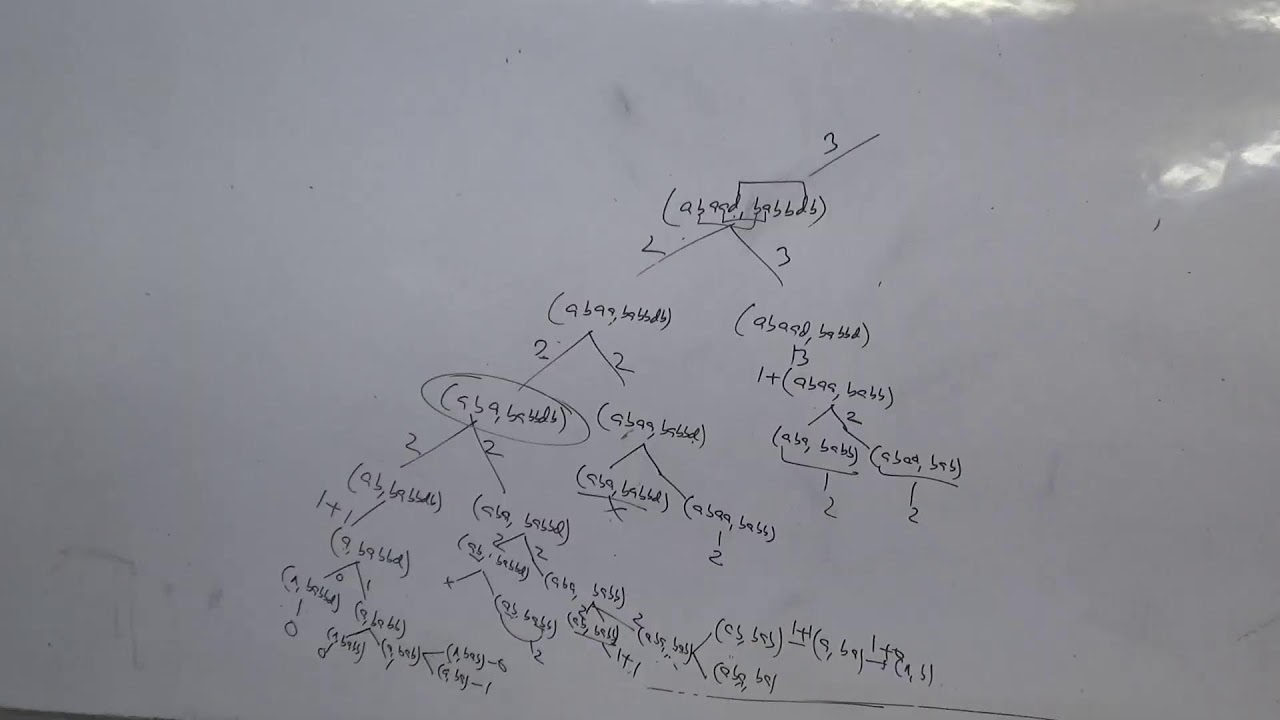 3
(abaad, babbdb)
2 3
(abaa, babbdb) (abaad, babbd)
2 2 13
1+(abaa, babb)
(aba, babbdb) (abaa, babbd) 2
2 2 (aba, babb) (abaa, bab)
(ab, babbdb) (aba, babbd) (abaa, babb) 1 1
1+1 (aba, babbd) x 1 2 2
(a, babbd) 2 2 2
0 1 (ab, babbd) (aba, babb)
x (ab, babb) 2 2
1 (a, babb) 2 (ab, babb) (aba, bab) (ab, bab) 1+1 (a, ba) 1+0
0 (a, bab) 1+1 (aba, ba)
0 1 0
(a, ba) - 1